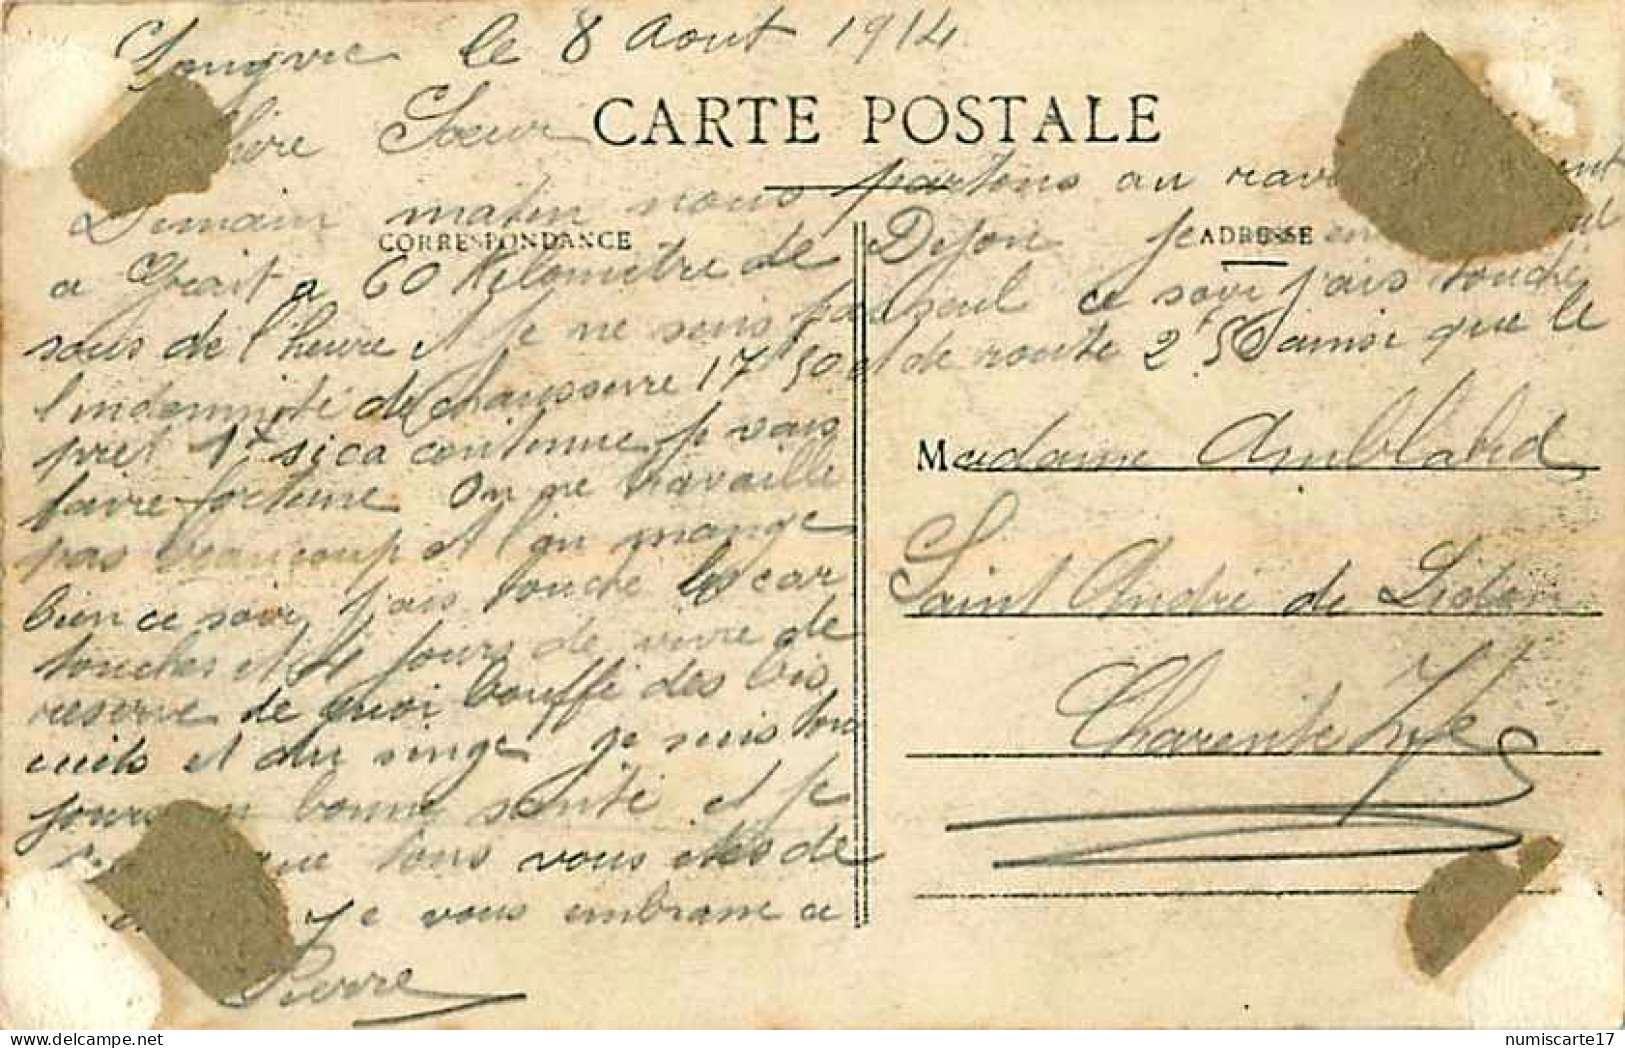 Longvic le 8 Aout 1914
Soeur
CARTE POSTALE
Demain matin nous partons au
CORRESPONDANCE
ADRESSE
a 60 Kilomètre de Dijon je
sous de l'heure et je ne suis pas seul ce soir j'ais touché
l'indemnité de chaussure 17f50 et de route 2f50 ainsi que le
pret 1f si ca continue je vais
faire fortune on ne travaille
pas beaucoup et l'on mange
bien ce soir j'ais touché les car
touches et jours de vivre de
reserve de quoi bouffé des bis
cuits et du singe je suis tou
jours en bonne santé et je
que tous vous etes de
Je vous embrasse
Pierre
Madame Amblard
Saint André de Lidon
Charente Infre
numiscarte17